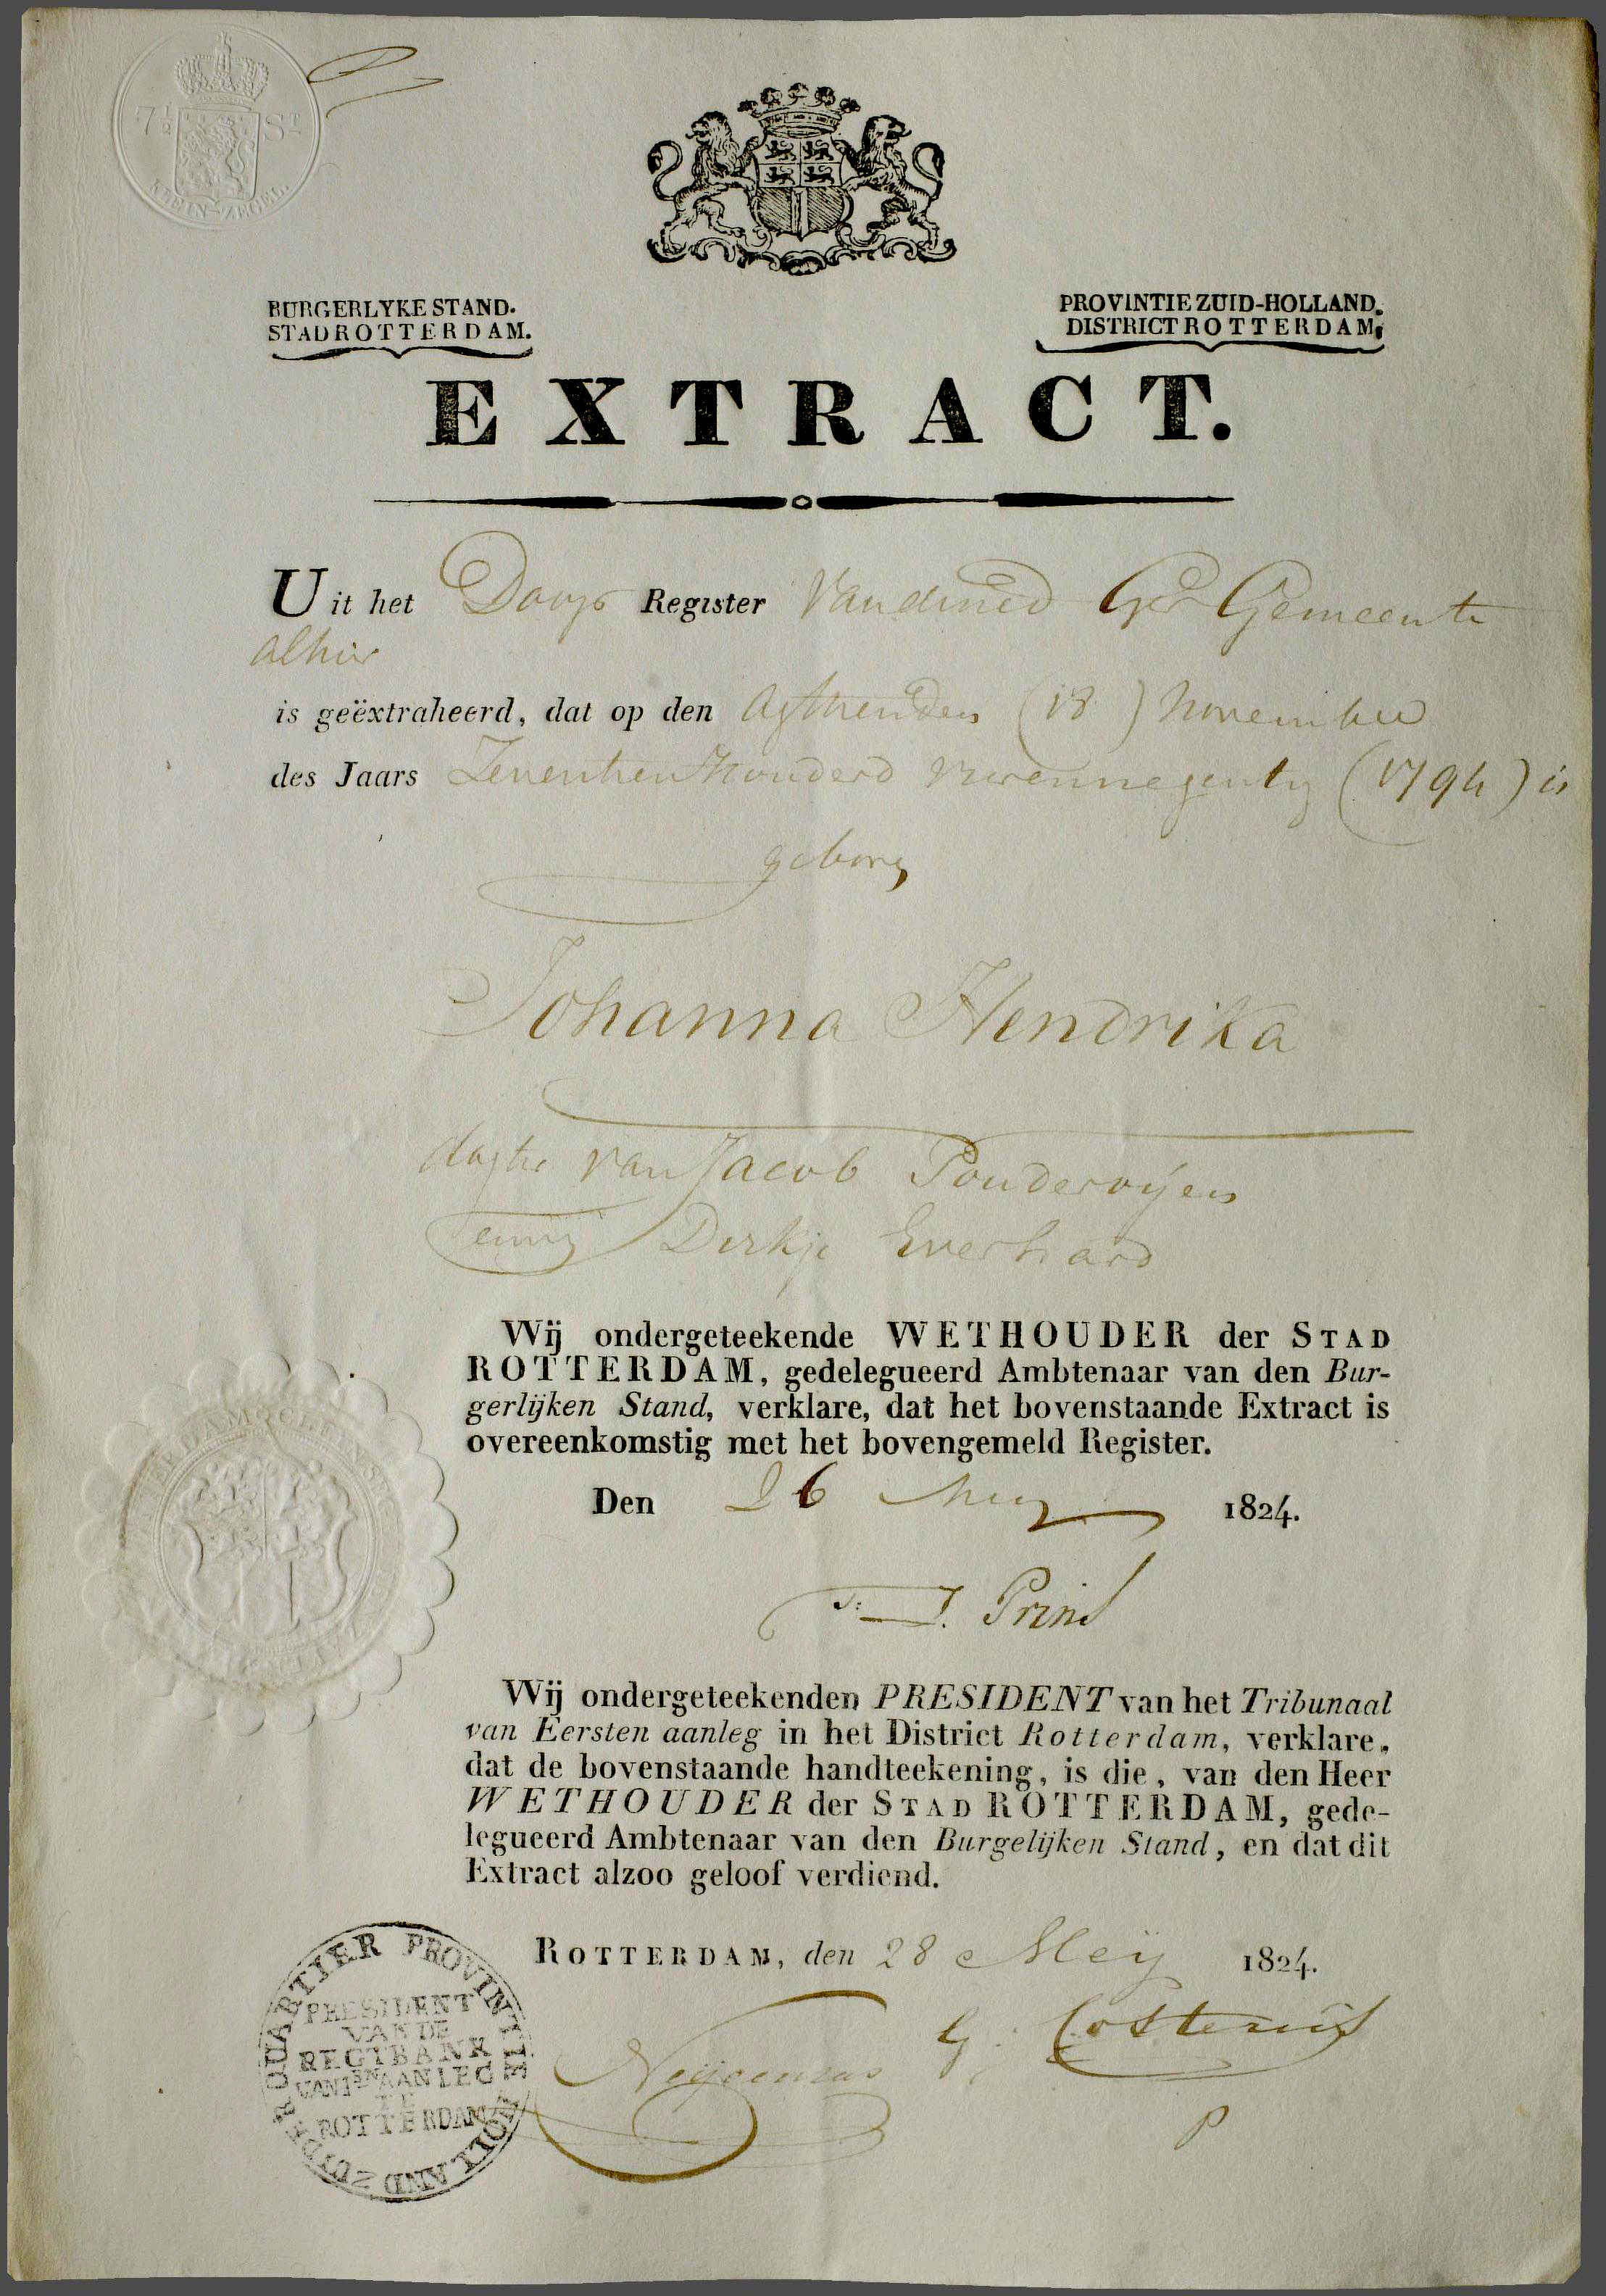 7½ ST
KLEIN-ZEGEL.
BURGERLYKE STAND.
STAD ROTTERDAM.
PROVINTIE ZUID-HOLLAND.
DISTRICT ROTTERDAM.
EXTRACT.
Uit het Doop Register Van de Ned Ger Gemeente
alhier
is geëxtraheerd, dat op den Agttienden (18) November
des Jaars Zeventienhonderd vierennegentig (1794) is
geboren
Johanna Hendrika
dogter van Jacob Pouderoÿen
en Dirkje Everhard
Wij ondergeteekende WETHOUDER der STAD
ROTTERDAM, gedelegueerd Ambtenaar van den Bur-
gerlijken Stand, verklare, dat het bovenstaande Extract is
overeenkomstig met het bovengemeld Register.
Den 26 Meij 1824.
J. Prins
Wij ondergeteekenden PRESIDENT van het Tribunaal
van Eersten aanleg in het District Rotterdam, verklare,
dat de bovenstaande handteekening, is die, van den Heer
WETHOUDER der STAD ROTTERDAM, gede-
legueerd Ambtenaar van den Burgelijken Stand, en dat dit
Extract alzoo geloof verdiend.
ROTTERDAM, den 28 Meij 1824.
G. Costerus
P
ZUIDER QUARTIER PROVINTIE HOLLAND
PRESIDENT
VAN DE
REGTBANK
VAN 1EN AANLEG
TE
ROTTERDAM